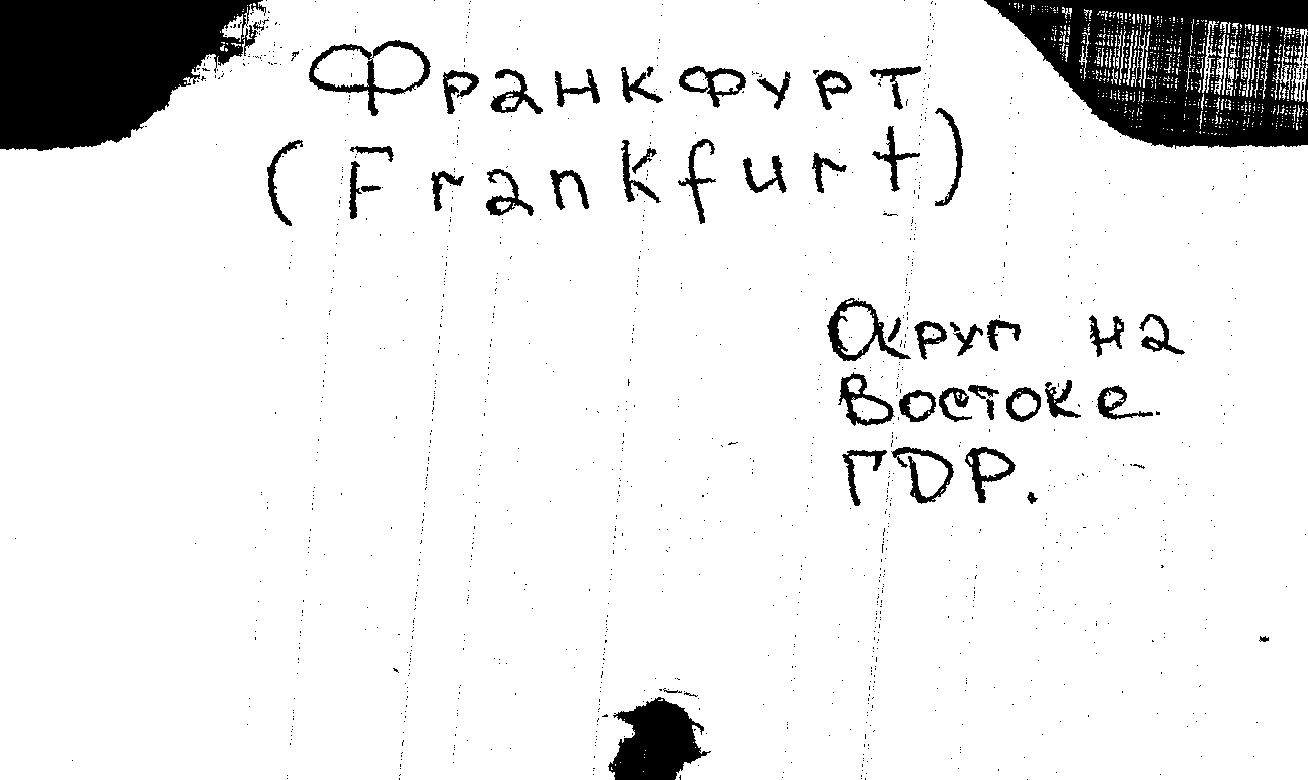 Франкфурт
(Frankfurt)
Округ на
востоке
ГДР.